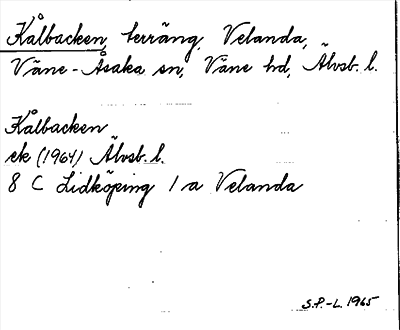 Kålbacken, terräng, Velanda,
Väne-Åsaka sn, Väne hd, Älvsb. l.
Kålbacken
ek (1964) Älvsb. l.
8 C Lidköping 1 a Velanda
S.P.-L. 1965